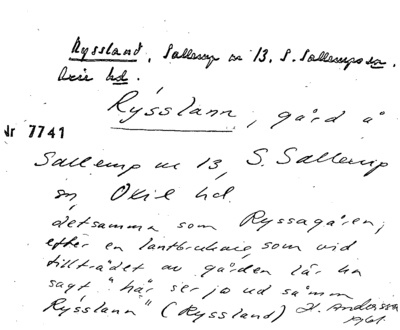 Ryssland, Sallerup nr 13, S. Sallerups sn.
Oxie hd.
Rysslann, gård å
Nr 7741
Sallerup nr 13, S. Sallerup
sn, Oxie hd.
detsamma som Ryssagåren;
efter en lantbrukare, som vid
tillträdet av gården lär ha
sagt "här ser ju ud såmm
Rysslann" (Ryssland) H. Andersson
1961.